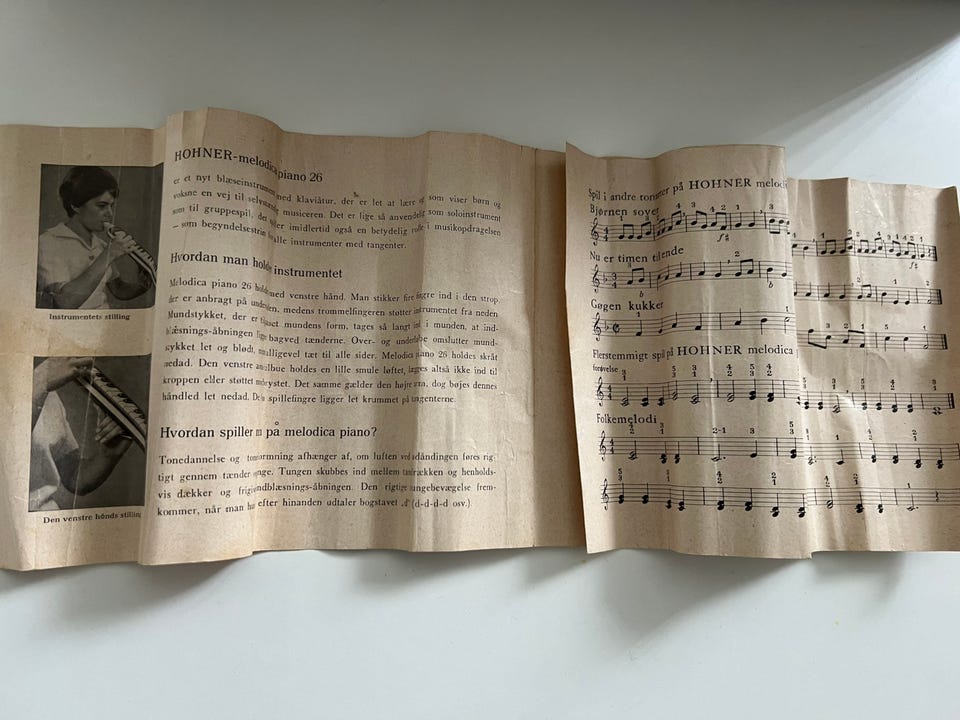 Instrumentets stilling
Den venstre hånds stilling
HOHNER-melodica piano 26
er et nyt blæseinstrument med klaviatur, der er let at lære og som viser børn og
voksne en vej til selv musiceren. Det er lige så anvendelig som soloinstrument
som til gruppespil, det imidlertid også en betydelig i musikopdragelsen
— som begyndelsestrin alle instrumenter med tangenter.
Hvordan man holder instrumentet
Melodica piano 26 holdes med venstre hånd. Man stikker fire fingre ind i den strop,
der er anbragt på undersiden, medens trommelfingeren støtter instrumentet fra neden
Mundstykket, der er mundens form, tages så langt ind i munden, at ind-
blæsnings-åbningen ligger bagved tænderne. Over- og underlæbe omslutter mund-
stykket let og blødt, smalligevel tæt til alle sider. Melodica piano 26 holdes skråt
nedad. Den venstre albue holdes en lille smule løftet, lægges altså ikke ind til
kroppen eller støttet brystet. Det samme gælder den højre arm, dog bøjes dennes
håndled let nedad. De spillefingre ligger let krummet på tangenterne.
Hvordan spiller m på melodica piano?
Tonedannelse og tonformning afhænger af, om luften ved åndingen føres rig-
tigt gennem tænder Tungen skubbes ind mellem tandrækken og henholds-
vis dækker og indblæsnings-åbningen. Den rigtige tungebevægelse frem-
kommer, når man efter hinanden udtaler bogstavet „d" (d-d-d-d osv.)
Spil i andre tonarter på HOHNER melodi
Bjørnen sover
4 3 4 2 1 3
Nu er timen til ende
Gøgen kukker
Flerstemmigt spil på HOHNER melodica
forøvelse
Folkemelodi